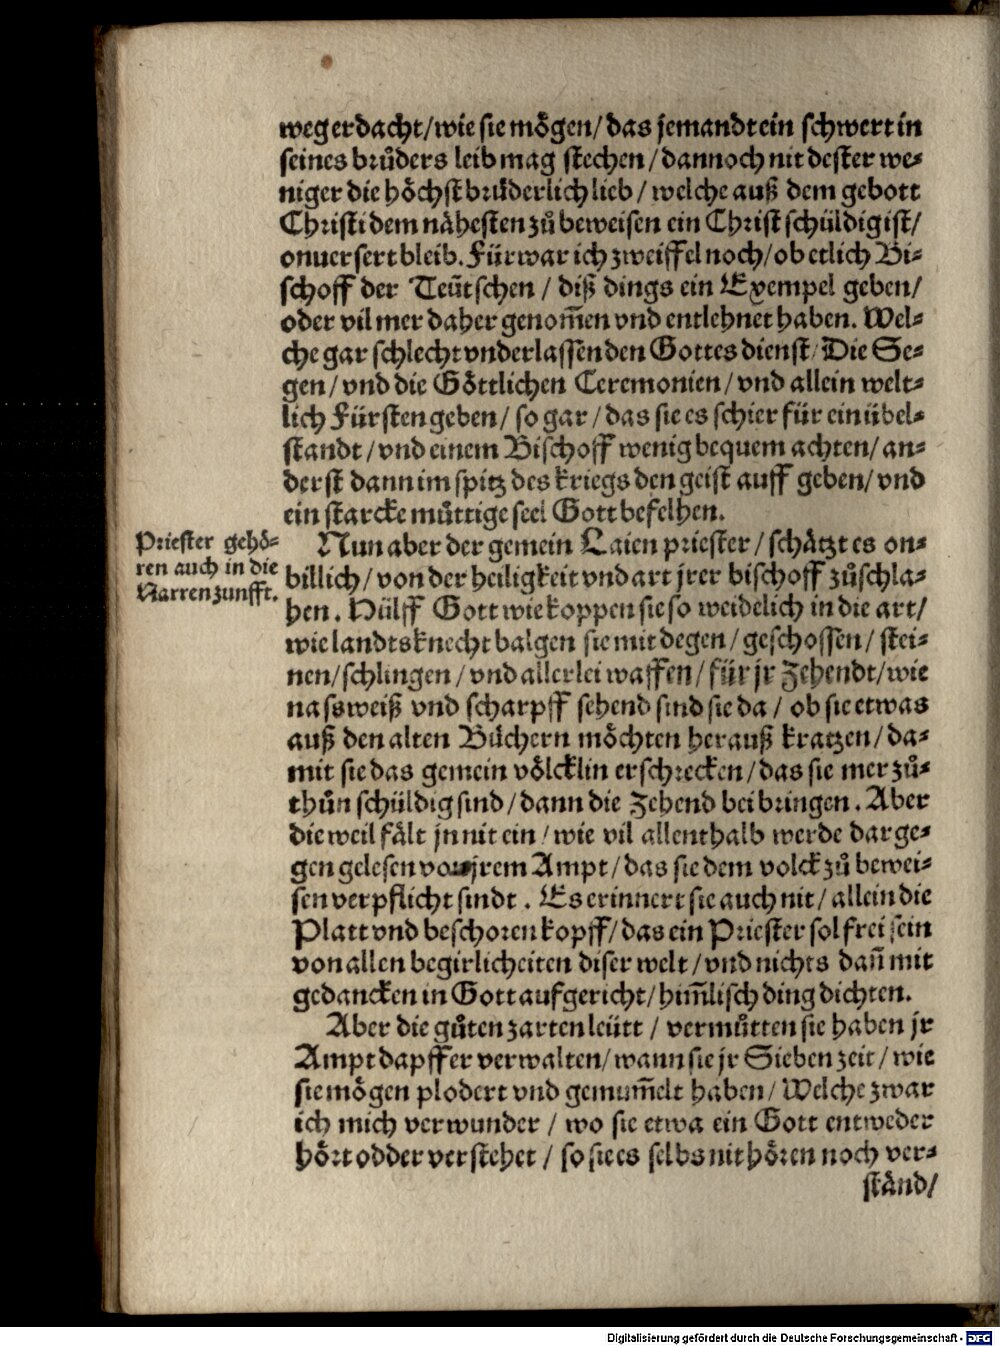 weg erdacht/ wie sie mögen/ das jemandt ein schwert in
seines brůders leib mag stechen/ dannoch nit dester we⸗
niger die höchst brůderlich lieb/ welche auß dem gebott
Christi dem nähesten zů beweisen ein Christ schüldig ist/
onuersert bleib. Fürwar ich zweiffel noch/ ob etlich Bi⸗
schoff der Teütschen/ diß dings ein Exempel geben/
oder vil mer daher genom̃en vnd entlehnet haben. Wel⸗
che gar schlecht vnderlassen den Gottes dienst/ Die Se⸗
gen/ vnd die Göttlichen Ceremonien/ vnd allein welt⸗
lich Fürsten geben/ so gar/ das sie es schier für ein übel⸗
standt/ vnd einem Bischoff wenig bequem achten/ an⸗
derst dann im spitz des kriegs den geist auff geben/ vnd
ein starcke můttige seel Gott befelhen.
Priester gehö⸗
ren auch in die
Narren zunfft.
Nun aber der gemein Laien priester/ schätzt es on⸗
billich/ von der heiligkeit vnd art jrer bischoff zů schla⸗
hen. Hülff Gott wie koppen sie so weidelich in die art/
wie landtsknecht balgen sie mit degen/ geschossen/ stei⸗
nen/ schlingen/ vnd allerlei waffen/ für jr Zehendt/ wie
nassweiß vnd scharpff sehend sind sie da/ ob sie etwas
auß den alten Bůchern möchten herauß kratzen/ da⸗
mit sie das gemein völcklin erschrecken/ das sie mer zů⸗
thůn schüldig sind/ dann die Zehend bei bringen. Aber
die weil fält jn nit ein/ wie vil allenthalb werde darge⸗
gen gelesen von jrem Ampt/ das sie dem volck zů bewei⸗
sen verpflicht sindt. Es erinnert sie auch nit/ allein die
Platt vnd beschoren kopff/ das ein Priester sol frei sein
von allen begirlicheiten diser welt/ vnd nichts dañ mit
gedancken in Gott aufgericht/ him̃lisch ding dichten.
Aber die gůten zarten leütt/ vermůtten sie haben jr
Ampt dapffer verwalten/ wann sie jr Sieben zeit/ wie
sie mögen plodert vnd gemum̃elt haben/ Welche zwar
ich mich verwunder/ wo sie etwa ein Gott entweder
hört odder verstehet/ so sie es selbs nit hören noch ver⸗
ständ/
Digitalisierung gefördert durch die Deutsche Forschungsgemeinschaft - DFG